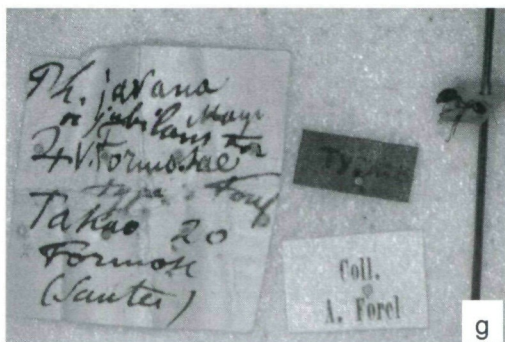 Ph. javana
v. jubilans For
Mayr
☿ V. Formosae
type Forel
Takao 20
Formose
(Sauter)
Typus
Coll.
A. Forel
g